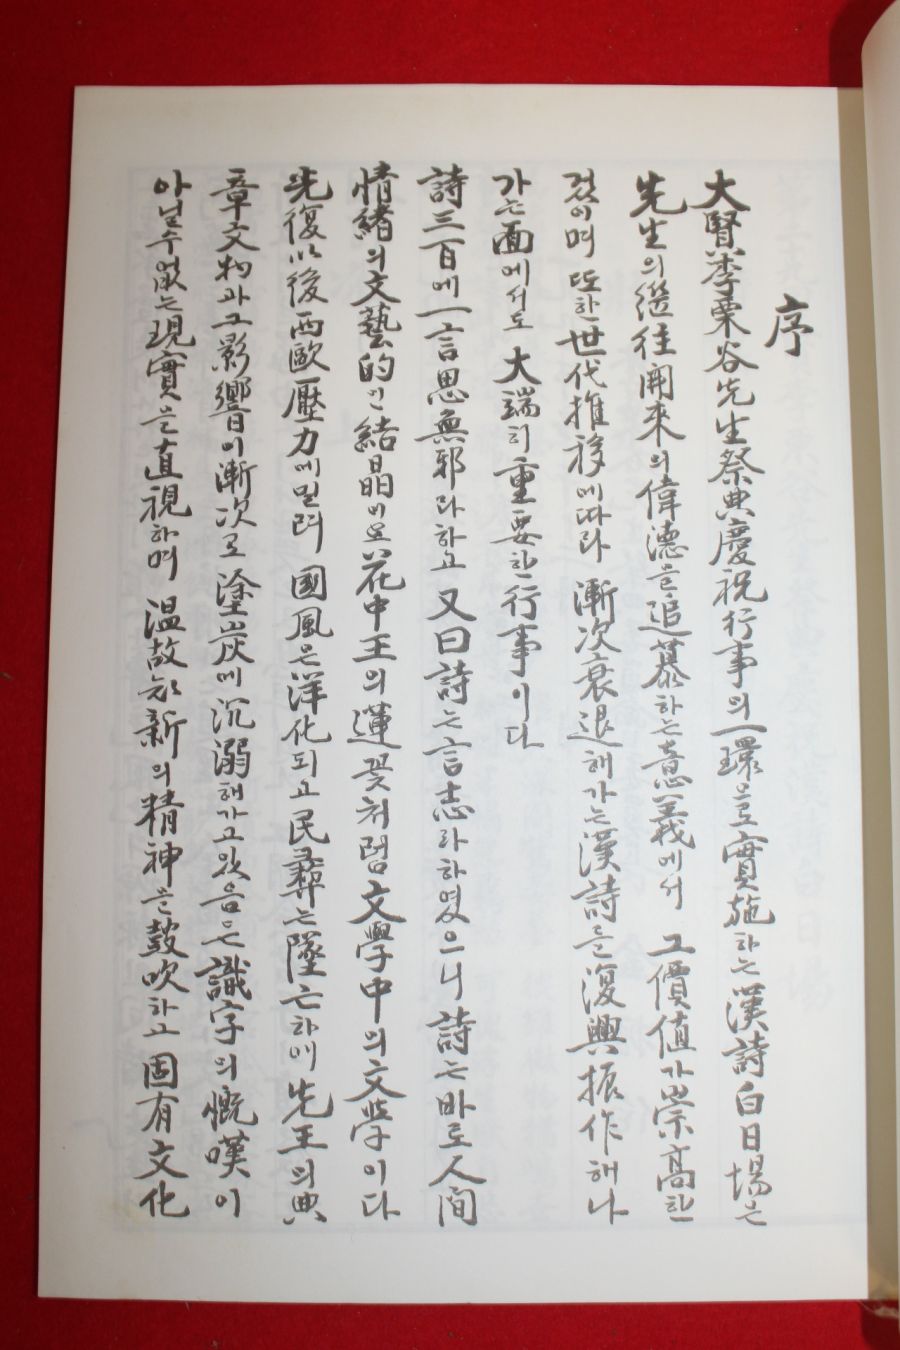 序
大賢 李栗谷先生祭典慶祝行事의 一環으로 實施하는 漢詩白日場은
先生의 繼往開來의 偉德을 追慕하는 意義에서 그 價値가 崇高한
것이며 또한 世代推移에 따라 漸次 衰退해가는 漢詩를 復興振作해 나
가는 面에서도 大端히 重要한 行事이다
詩三百에 一言 思無邪라 하고 又曰 詩는 言志라 하였으니 詩는 바로 人間
情緖의 文藝的인 結晶이 花中王의 蓮꽃처럼 文學中의 文學이다
光復以後 西歐壓力에 밀려 國風은 洋化되고 民彛는 墜亡하여 先王의 典
章文物과 그 影響이 漸次로 塗炭에 沉溺해 가고 있음은 識字의 慨嘆이
아닐 수 없는 現實을 直視하며 溫故知新의 精神을 鼓吹하고 固有文化